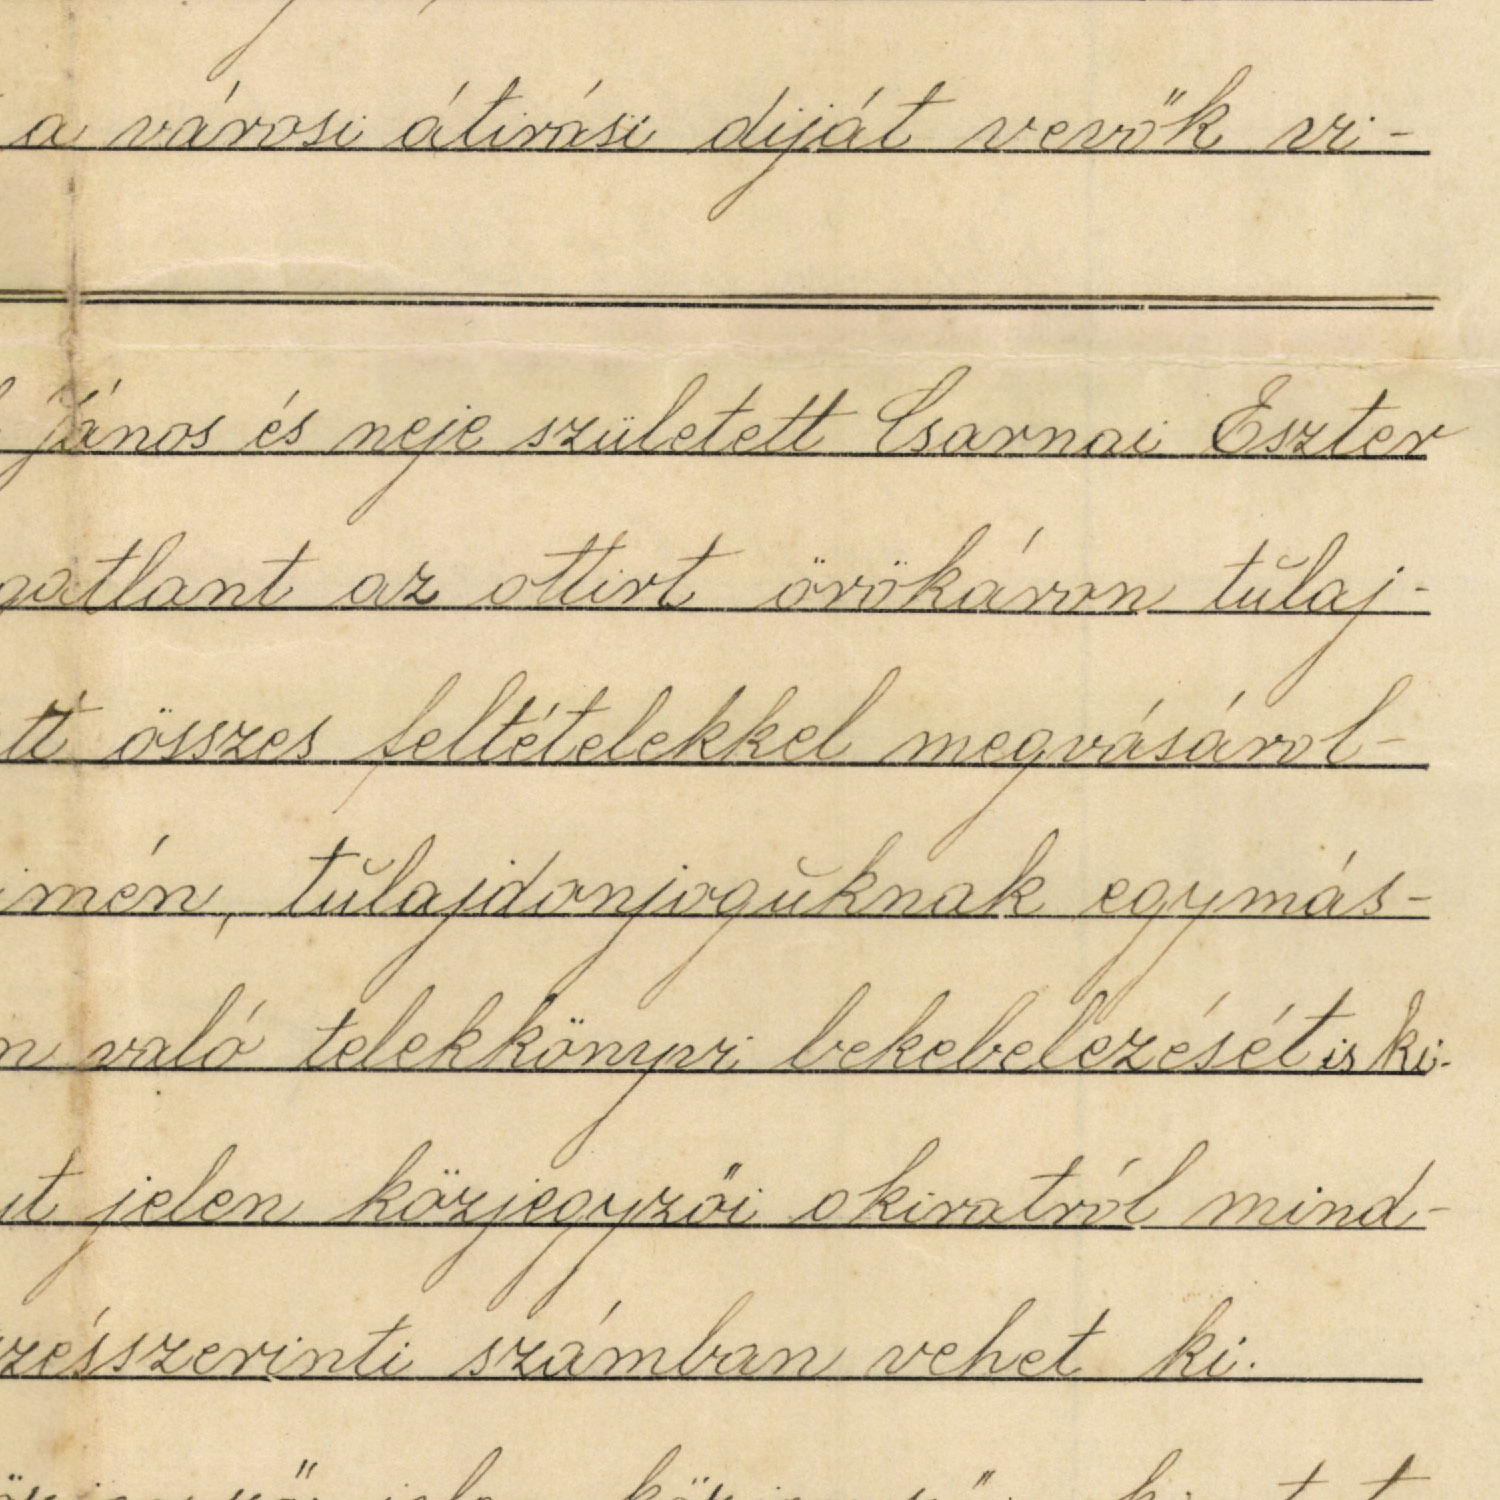 a városi átirási diját vevők vi-
János és neje született Csarnai Eszter
gatlant az ottirt örökáron tulaj-
tt összes feltételekkel megvásárol-
imén, tulajdonjoguknak egymás-
n való telekkönyvi bekebelezését is ki-
jelen közjegyzői okiratról mind-
zésszerinti számban vehet ki.